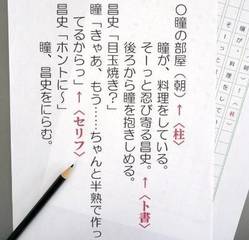 〇瞳の部屋(朝)←〈柱〉
瞳が、料理をしている。
そーっと忍び寄る昌史。←〈ト書〉
後ろから瞳を抱きしめる。
昌史「目玉焼き?」
瞳「きゃあ、もう……ちゃんと半熟で作っ
てるからっ」←〈セリフ〉
昌史「ホントに~」
瞳、昌史をにらむ。